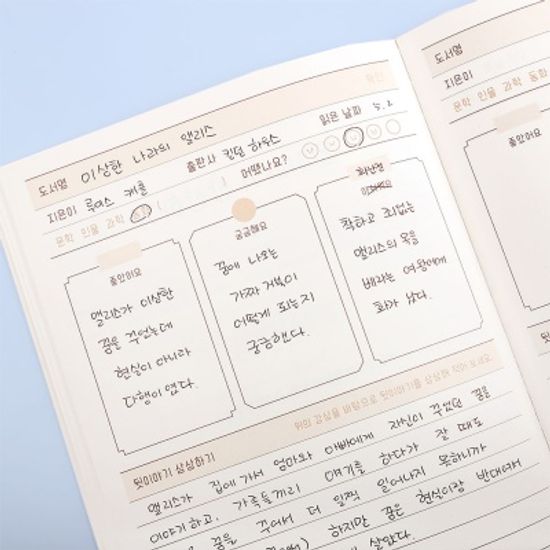 확인
도서명 이상한 나라의 앨리스
지은이 루이스 캐롤 출판사 킨덤 하우스 읽은 날짜 5. 2
문학 인물 과학 어땠나요?
좋았어요
앨리스가 이상한
꿈을 꾸었는데
현실이 아니라
다행이 였다.
궁금해요
꿈에 나오는
가짜 거북이
어떻게 되는지
궁금했다.
화난점
착하고 죄없는
앨리스의 목을
베라는 여왕에게
화가 났다.
뒷이야기 상상하기 위의 감상을 바탕으로 뒷이야기를 상상해 적어 보세요.
앨리스가 집에 가서 엄마와 아빠에게 자신이 꾸었던 꿈을
이야기 하고, 가족들끼리 얘기를 하다가 잘 때도
꿈을 꾸어서 더 일찍 일어나지 못하니까
하지만 꿈은 현실이랑 반대여서
살았다.
도서명
지은이
문학 인물 과학 동화
좋았어요